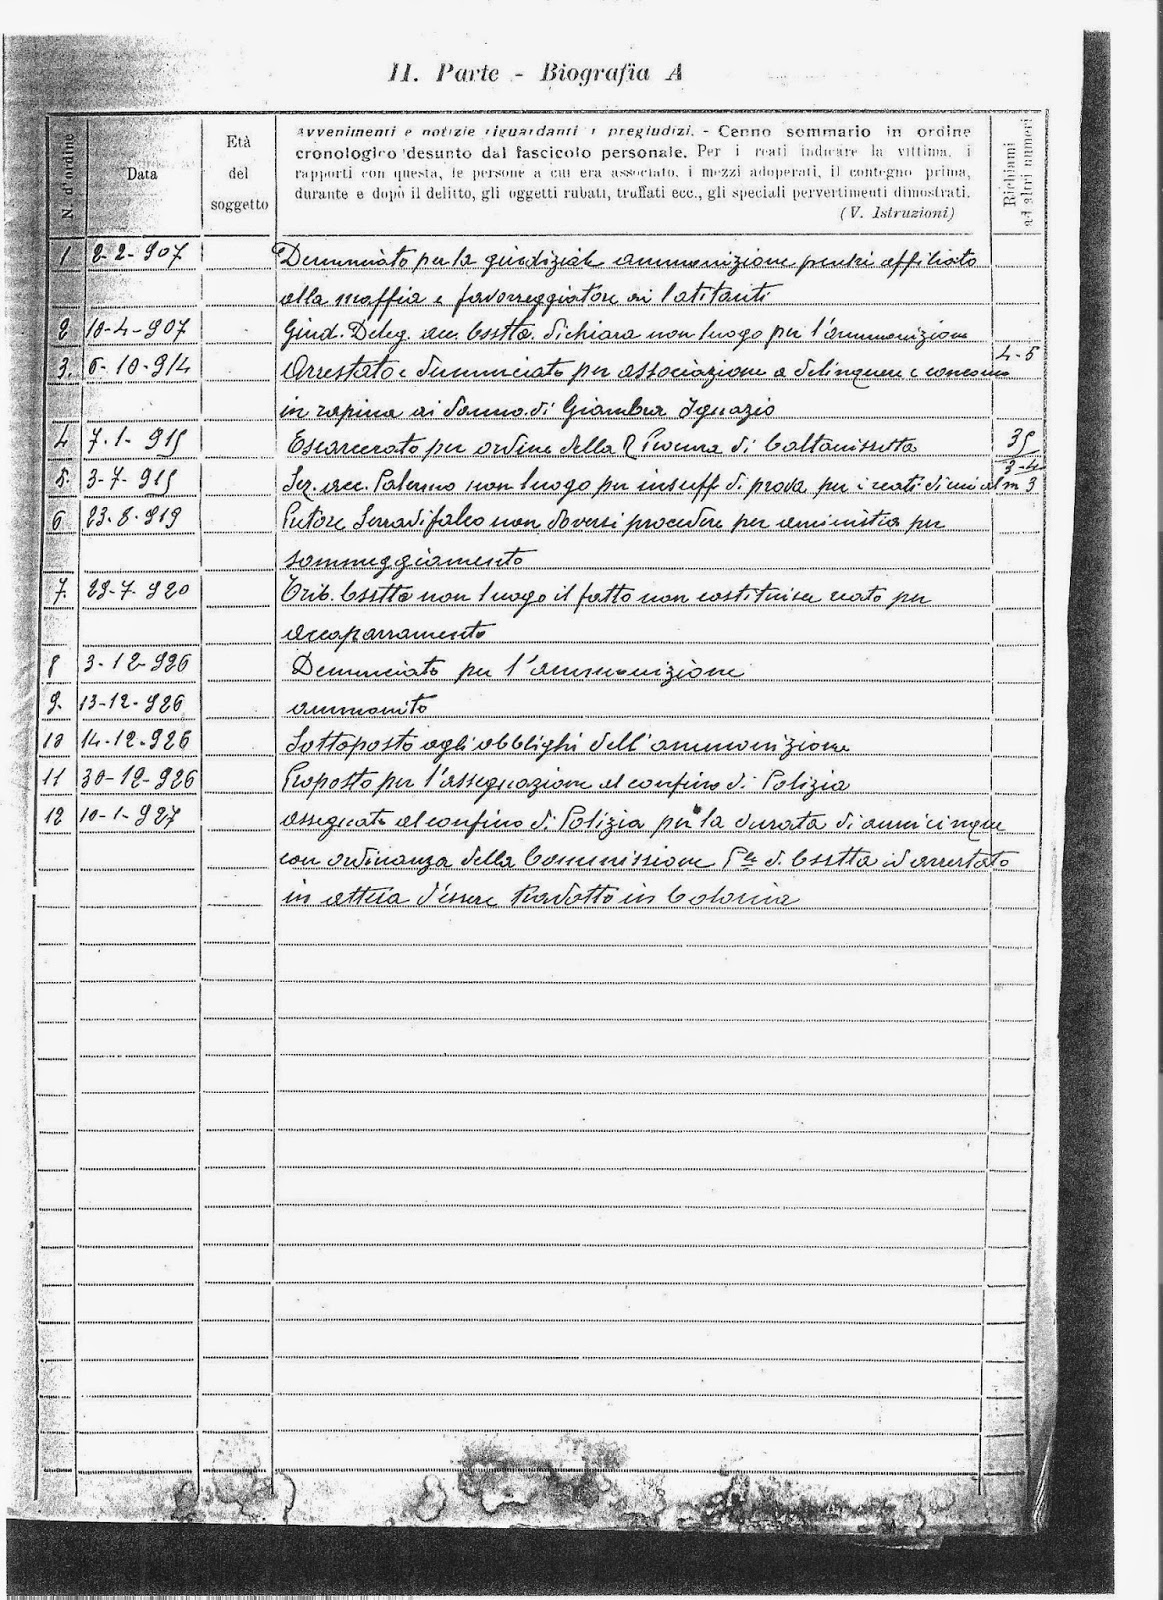 II. Parte - Biografia A
N. d'ordine
Data
Età
del
soggetto
Avvenimenti e notizie riguardanti i pregiudizi. - Cenno sommario in ordine
cronologico desunto dal fascicolo personale. Per i reati indicare la vittima, i
rapporti con questa, le persone a cui era associato, i mezzi adoperati, il contegno prima,
durante e dopo il delitto, gli oggetti rubati, truffati ecc., gli speciali pervertimenti dimostrati.
(V. Istruzioni)
Richiami
ad altri numeri
1 2-2-907 Denunciato per la giudiziale ammonizione perchè affiliato
alla maffia e favoreggiatore di latitanti
2 10-4-907 Giud. Deleg. acc. Cssetta. dichiara non luogo per l'ammonizione
3. 6-10-914 Arrestato e denunciato per associazione a delinquere e concorso 4-5
in rapina ai danno di Giambra Ignazio
4 7-1-915 Escarcerato per ordine della R Procura di Caltanissetta 35
5. 3-7-915 Sez. acc. Palermo non luogo per insuff. di prova per i reati di cui al n 3 3-4
6 23-8-919 Pretore Serradifalco non doversi procedere per aministia per
sommeggiamento
7. 29-7-920 Trib. Cssetta non luogo il fatto non costituisce reato per
accaparramento
8 3-12-926 Denunciato per l'ammonizione
9. 13-12-926 ammonito
10 14-12-926 Sottoposto agli obblighi dell'ammonizione
11 30-12-926 Proposto per l'assegnazione al confino di Polizia
12 10-1-927 assegnato al confino di Polizia per la durata di anni cinque
con ordinanza della Commissione Ple di Cssetta ed arrestato
in attesa d'essere tradotto in Colonia